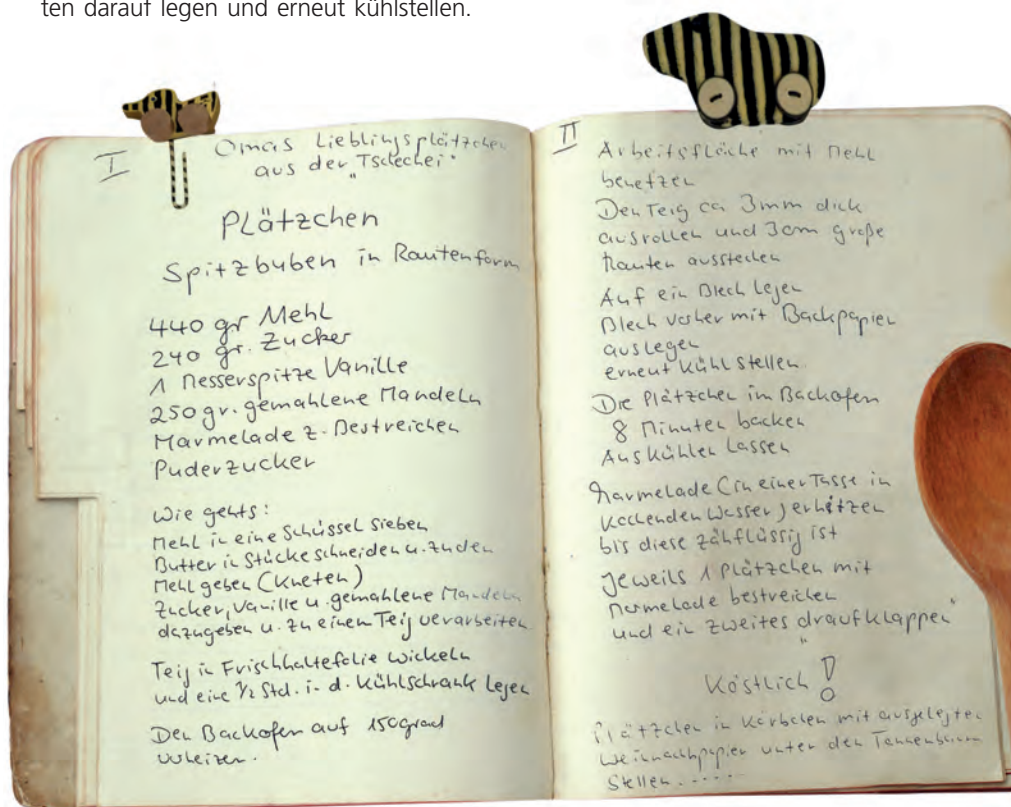 ten darauf legen und erneut kühlstellen.
I
Omas Lieblingsplätzchen
aus der "Tschechei"
Plätzchen
Spitzbuben in Rautenform
440 gr Mehl
240 gr. Zucker
1 Messerspitze Vanille
250 gr. gemahlene Mandeln
Marmelade z. Bestreichen
Puderzucker
Wie gehts:
Mehl in eine Schüssel sieben
Butter in Stücke schneiden u. zu den
Mehl geben (kneten)
Zucker, Vanille u. gemahlene Mandeln
dazugeben u. zu einem Teig verarbeiten
Teig in Frischhaltefolie wickeln
und eine 1/2 Std. i. d. Kühlschrank legen
Den Backofen auf 150 grad
vorheizen.
II
Arbeitsfläche mit Mehl
benetzen
Den Teig ca 3mm dick
ausrollen und 3cm große
Rauten ausstechen
Auf ein Blech legen
Blech vorher mit Backpapier
auslegen
erneut kühl stellen
Die Plätzchen im Backofen
8 Minuten backen
Auskühlen lassen
Marmelade (in einer Tasse in
kochenden Wasser) erhitzen
bis diese zähflüssig ist
Jeweils 1 Plätzchen mit
Marmelade bestreichen
und ein zweites "draufklappen"
Köstlich!
Plätzchen in Körbchen mit ausgelegten
Weihnachpapier unter den Tannenbaum
stellen.....